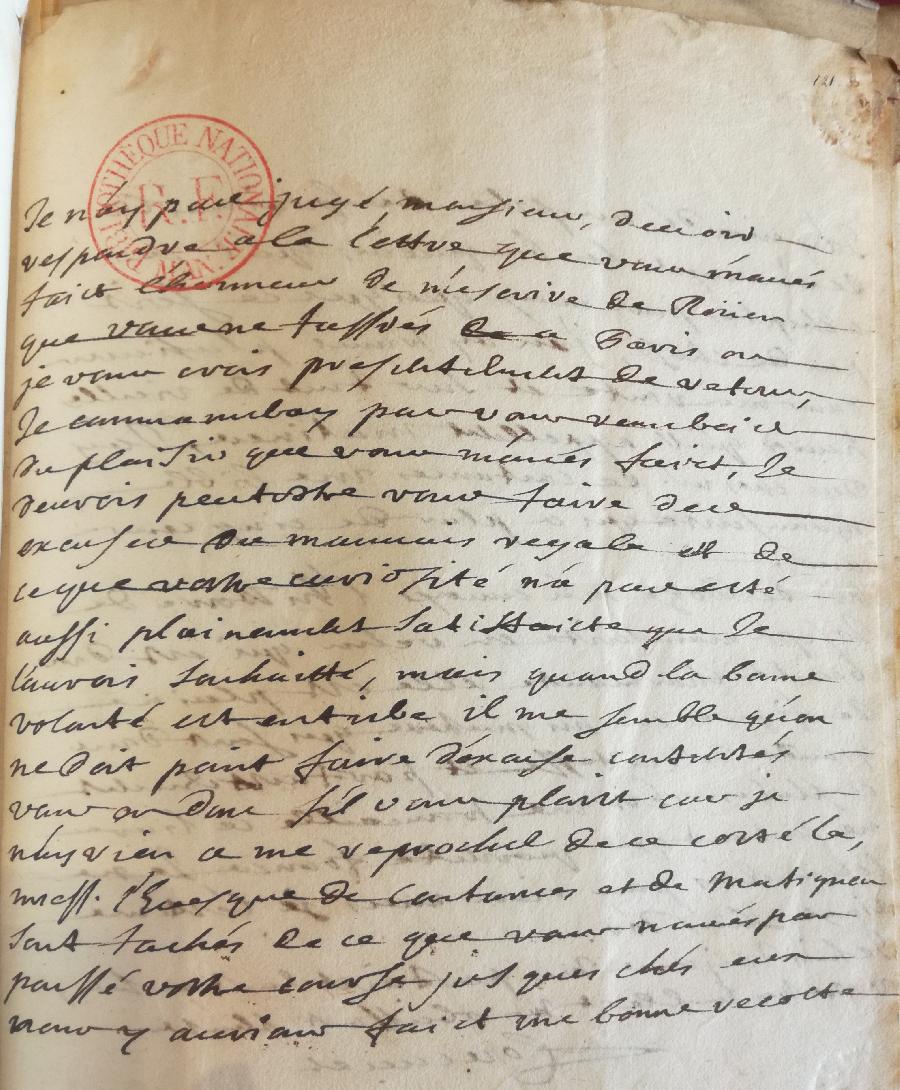 121
BIBLIOTHEQUE NATIONALE
R.F.
Je n'ay pas jugé, monsieur, devoir
respondre a la lettre que vous m'avés
faict l'honneur de m'escrire de Roüen
que vous ne fussiés a Paris ou
je vous crois presentement de retour,
Je commancebay par vous
du plaisir que vous m'avés faict, Je
devrois peutestre vous faire dece
excuses du mauvais regale et de
ce que vostre curiosité n'a pas esté
aussi plainement satisfaicte que Je
l'avois souhaitté, mais quand la bonne
volonté est entiere il me semble qu'on
ne doit point faire d'excuse contentés
vous en donc s'il vous plaist car je
n'ay rien a me reprocher de ce costé la,
mess. l'Evesque de Coutances et de Matignon
sont fachés de ce que vous n'avés pas
poussé vostre course jusques chés eux
vous y auriaus faict une bonne recolte